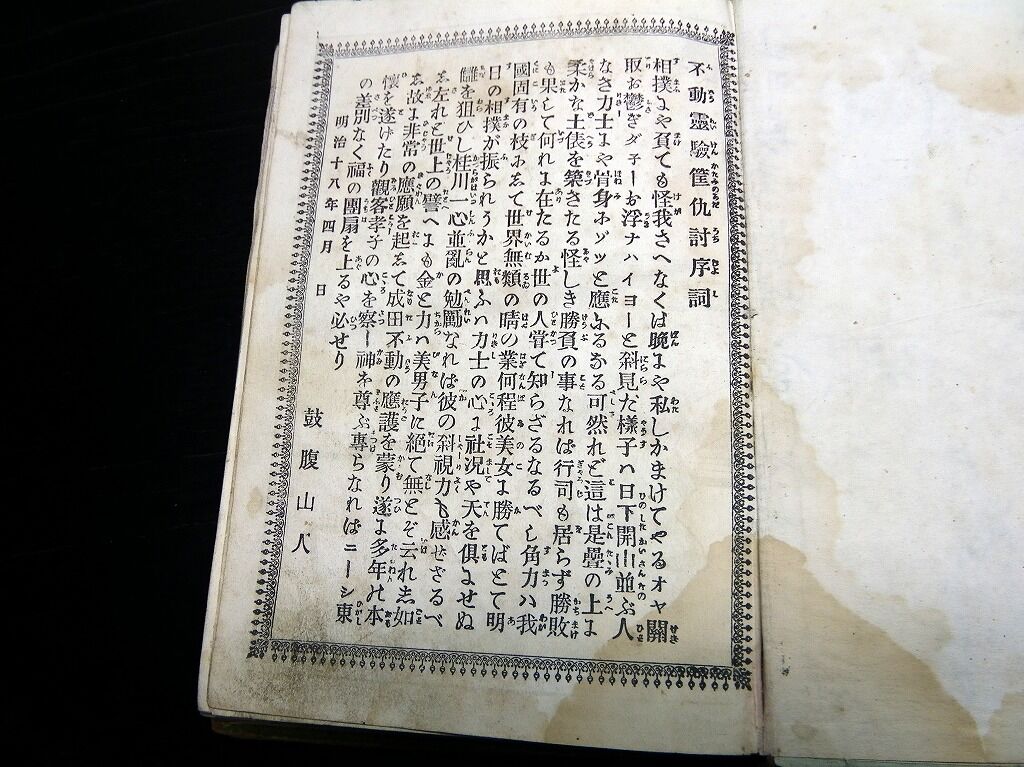 不動靈驗筐仇討序詞
相撲にや負ても怪我さへなくば晩にや私しかまけてやるオヤ關
取お鬱ぎダ子ーお浮ナハイヨーと斜見た樣子ハ日下開山並ぶ人
なき力士にや骨身にゾツと應ふるなる可然れど這は是疊の上に
柔かな土俵を築きたる怪しき勝負の事なれば行司も居らず勝敗
も果して何れに在たるか世の人甞て知らざるなるべし角力ハ我
國固有の技にして世界無類の晴の業何程彼美女に勝てばとて明
日の相撲が振られうかと思ふハ力士の心に社況や天を俱にせぬ
讎を狙ひし桂川一心並亂の勉勵なれば彼の斜視力も感せざるべ
し左れど世上の譬へにも金と力ハ美男子に絶て無とぞ云れし如
し故に非常の應願を起して成田不動の應護を蒙り遂に多年の本
懷を遂けたり觀客孝子の心を察し神を尊ぶ專らなればニーシ東
の差別なく福の團扇を上るや必せり
明治十八年四月　日
鼓腹山人